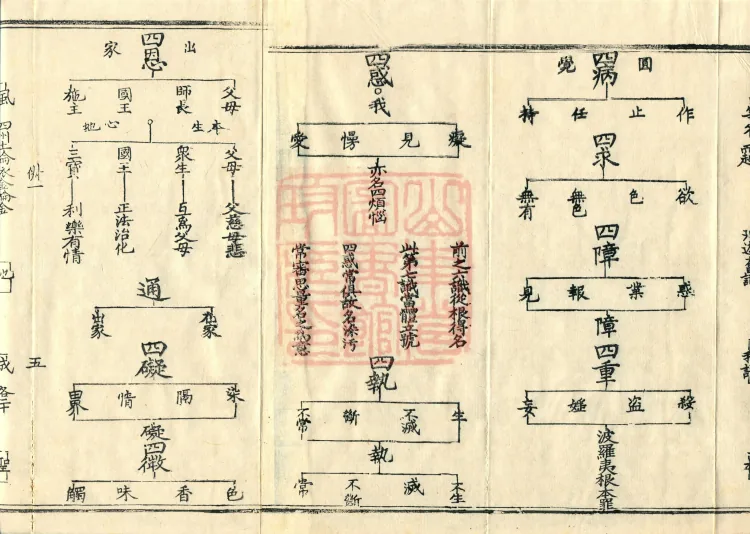 圓覺
四病
作 止 任 持
四求
欲 色 無色 無有
四障
惑 業 報 見
障四重
殺 盜 婬 妄
波羅夷根本罪
四惑。我
癡 見 慢 愛
亦名四煩惱
前之六識從根得名
此第七識當體立號
四惑常俱故名染污
常審思量名之為意
四執
生 不滅 斷 不常
執
不生 滅 不斷 常
出家
四恩
父母 師長 國王 施主
本生心地
父母 父慈母悲
衆生 互爲父母
國王 正法治化
三寳 利樂有情
通
在家 出家
四礙
染 隔 情 界
礙四微
色 香 味 觸
五